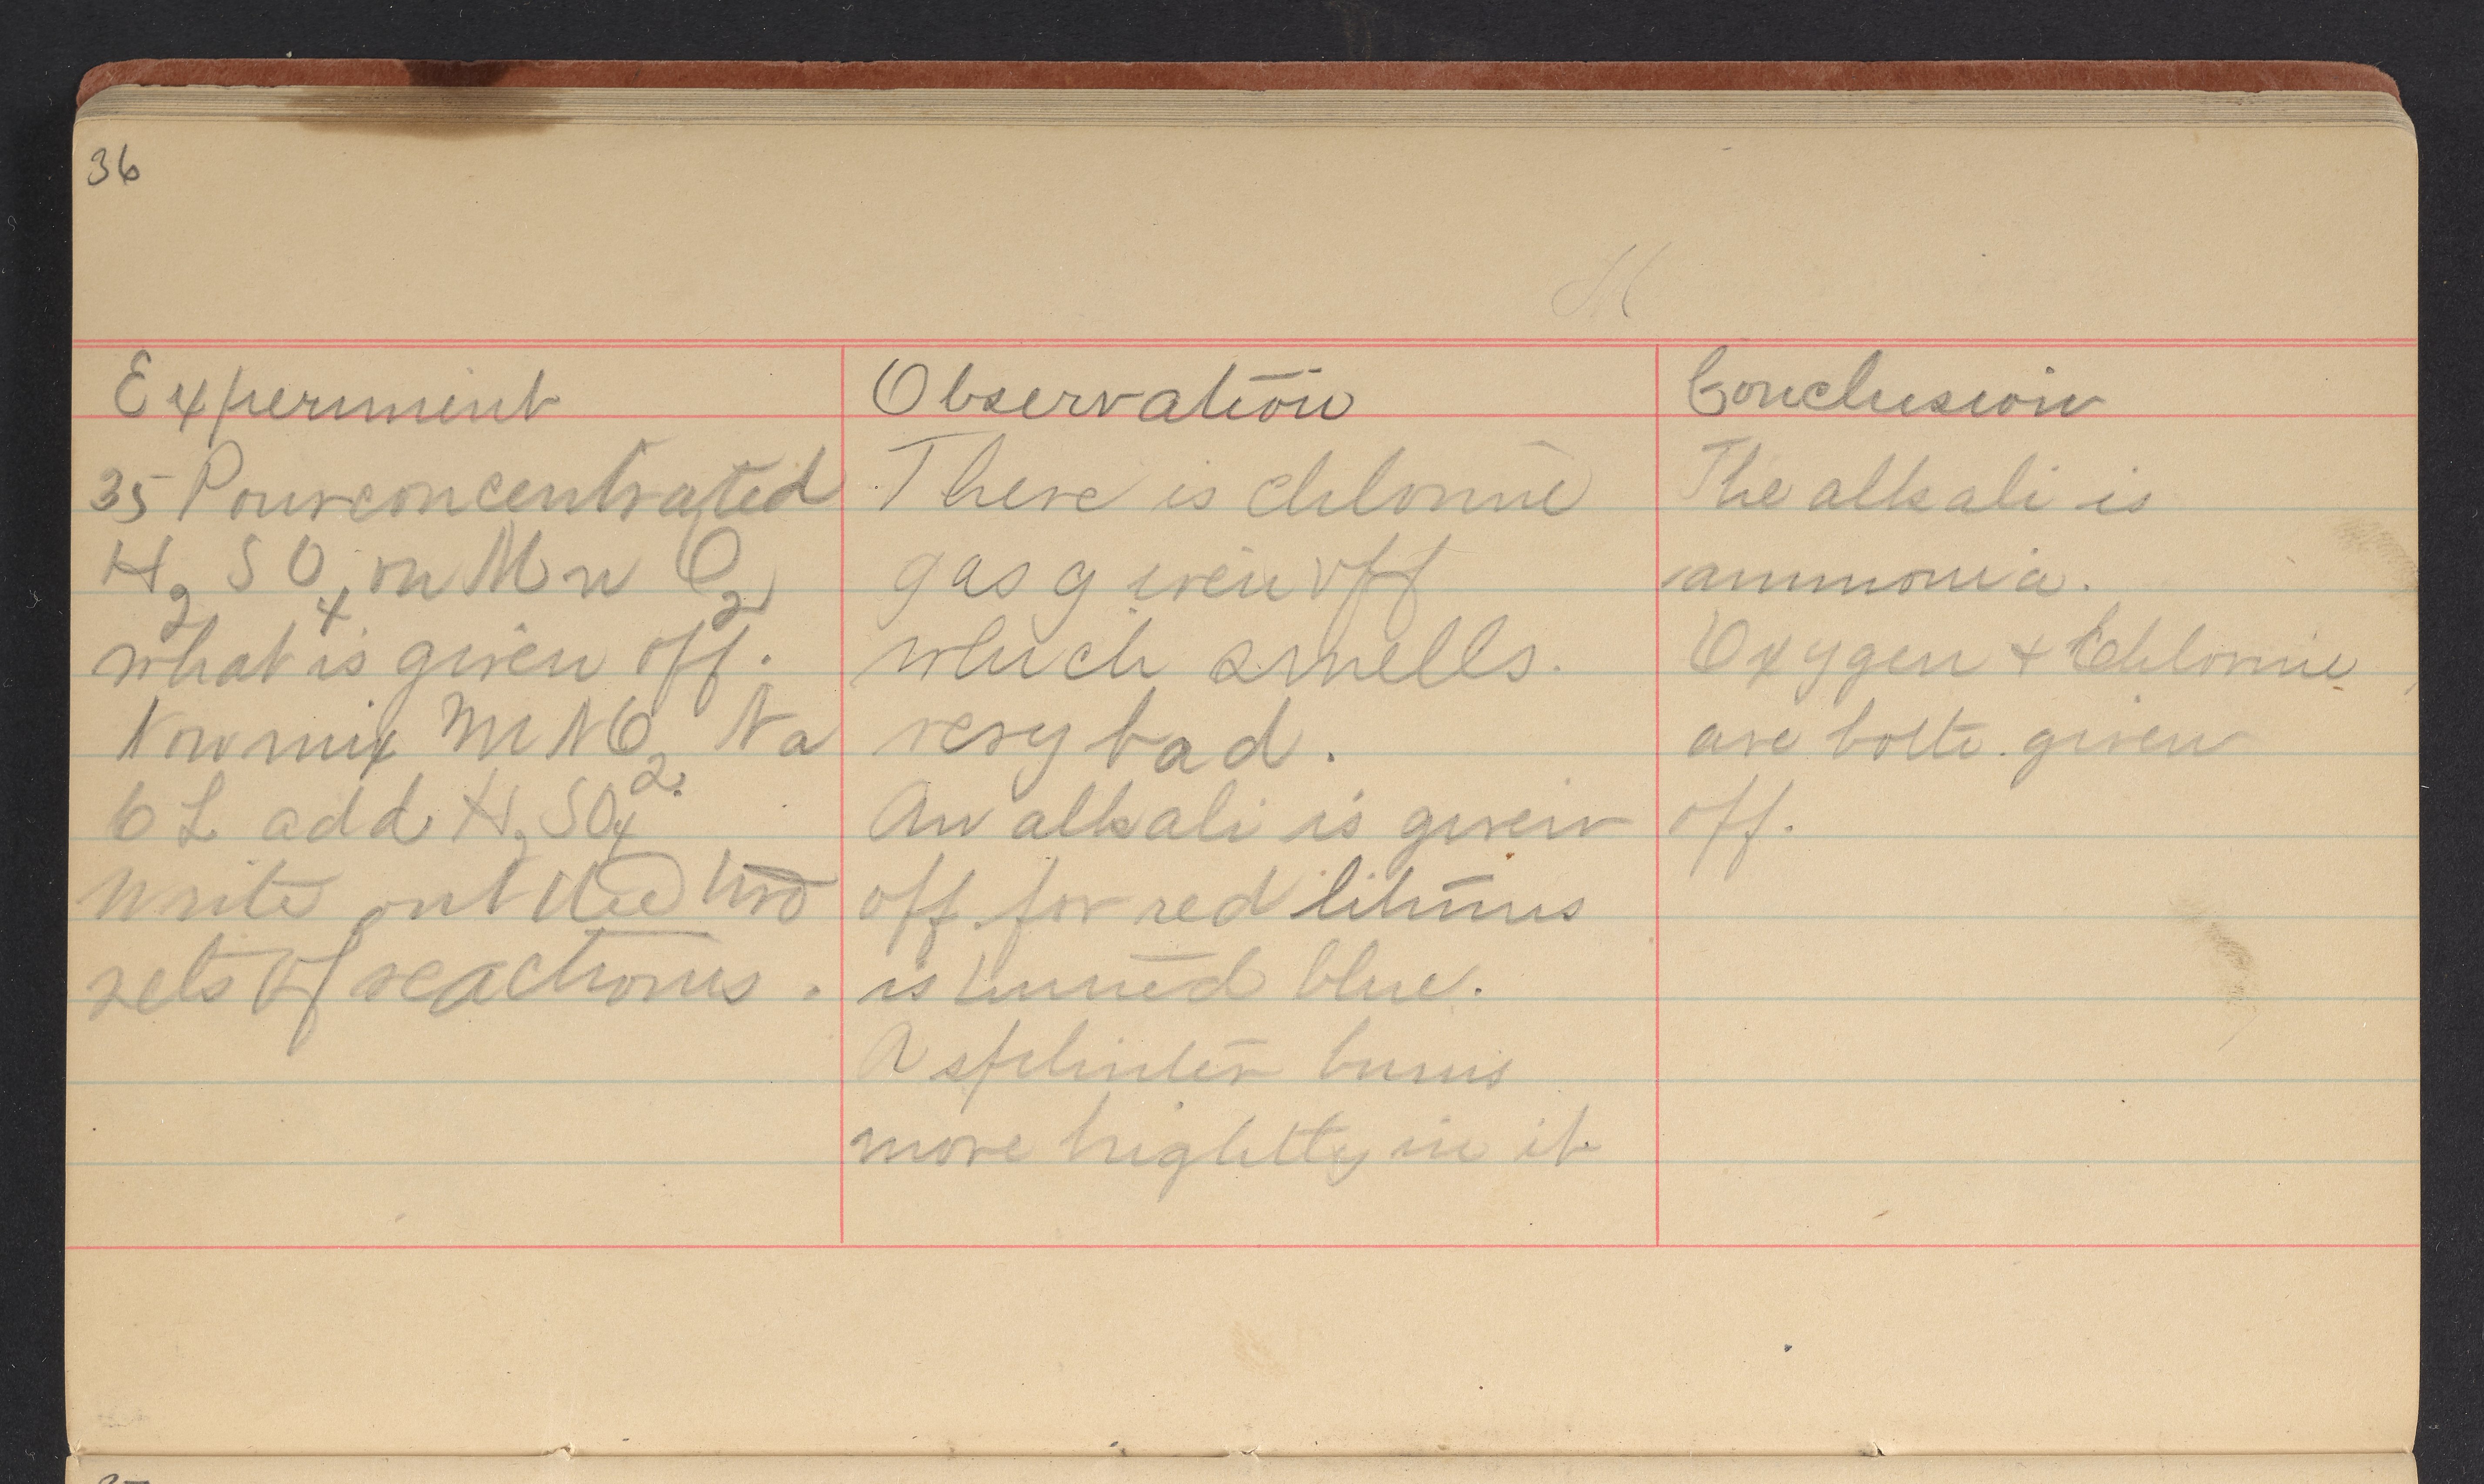 36
Experiment
35 Pour concentrated
H2SO4 on MnO2
what is given off.
Now mix MNO2 Na
Cl add H2SO4
Write out the two
sets of reactions.
Observation
There is chlorine
gas given off
which smells.
very bad.
An alkali is given
off for red litmus
is turned blue.
A splinter burns
more brightly in it
Conclusion
The alkali is
ammonia.
Oxygen + Chlorine
are both given
off.